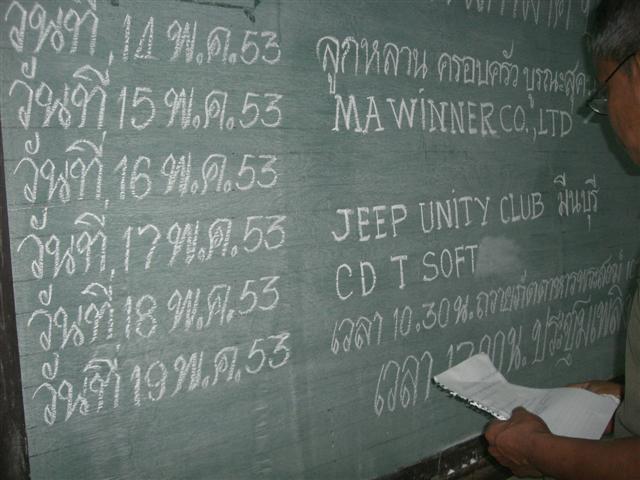 วันที่ 14 พ.ค.53
วันที่ 15 พ.ค.53
วันที่ 16 พ.ค.53
วันที่ 17 พ.ค.53
วันที่ 18 พ.ค.53
วันที่ 19 พ.ค.53
ลูกหลาน ครอบครัว บูรณะสุด
MA WINNER CO.,LTD
JEEP UNITY CLUB มีนบุรี
CDT SOFT
เวลา 10.30น.ถวายภัตตาหารพระสงฆ์
เวลา น. ประชุมเพลิง